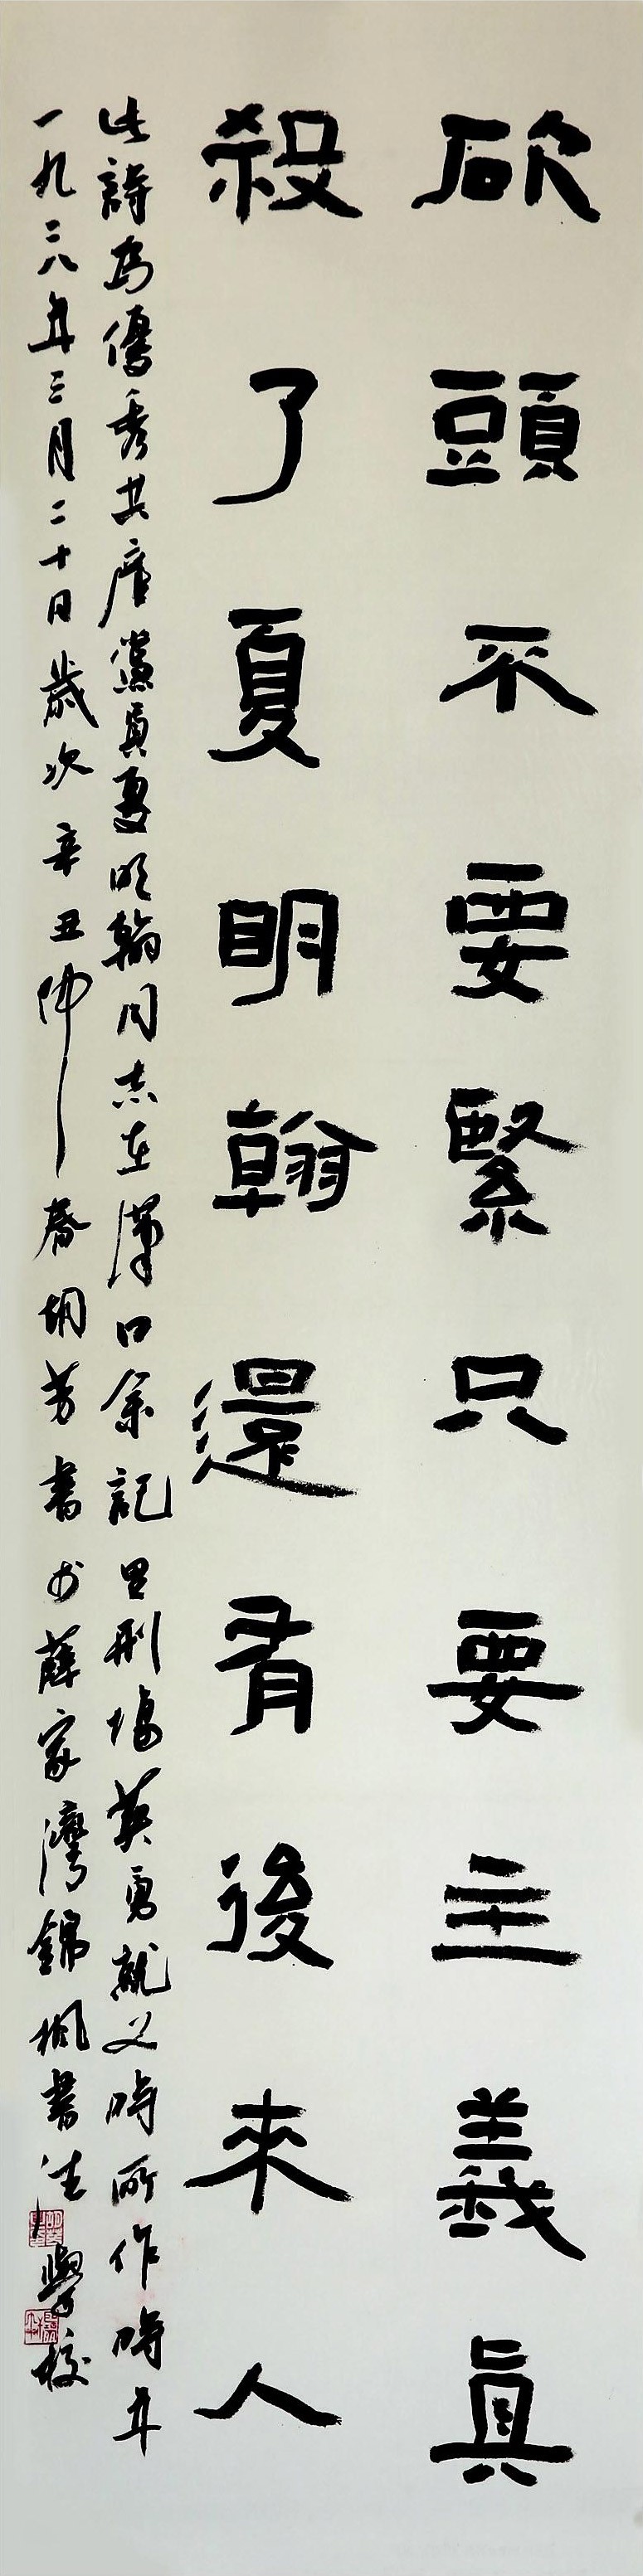 砍頭不要緊只要主義真
殺了夏明翰還有後來人
此詩為優秀共產黨員夏明翰同志在漢口余記里刑場英勇就义時所作時年
一九二八年三月二十日歲次辛丑仲春胡芳書於薛家灣錦楓書法學校